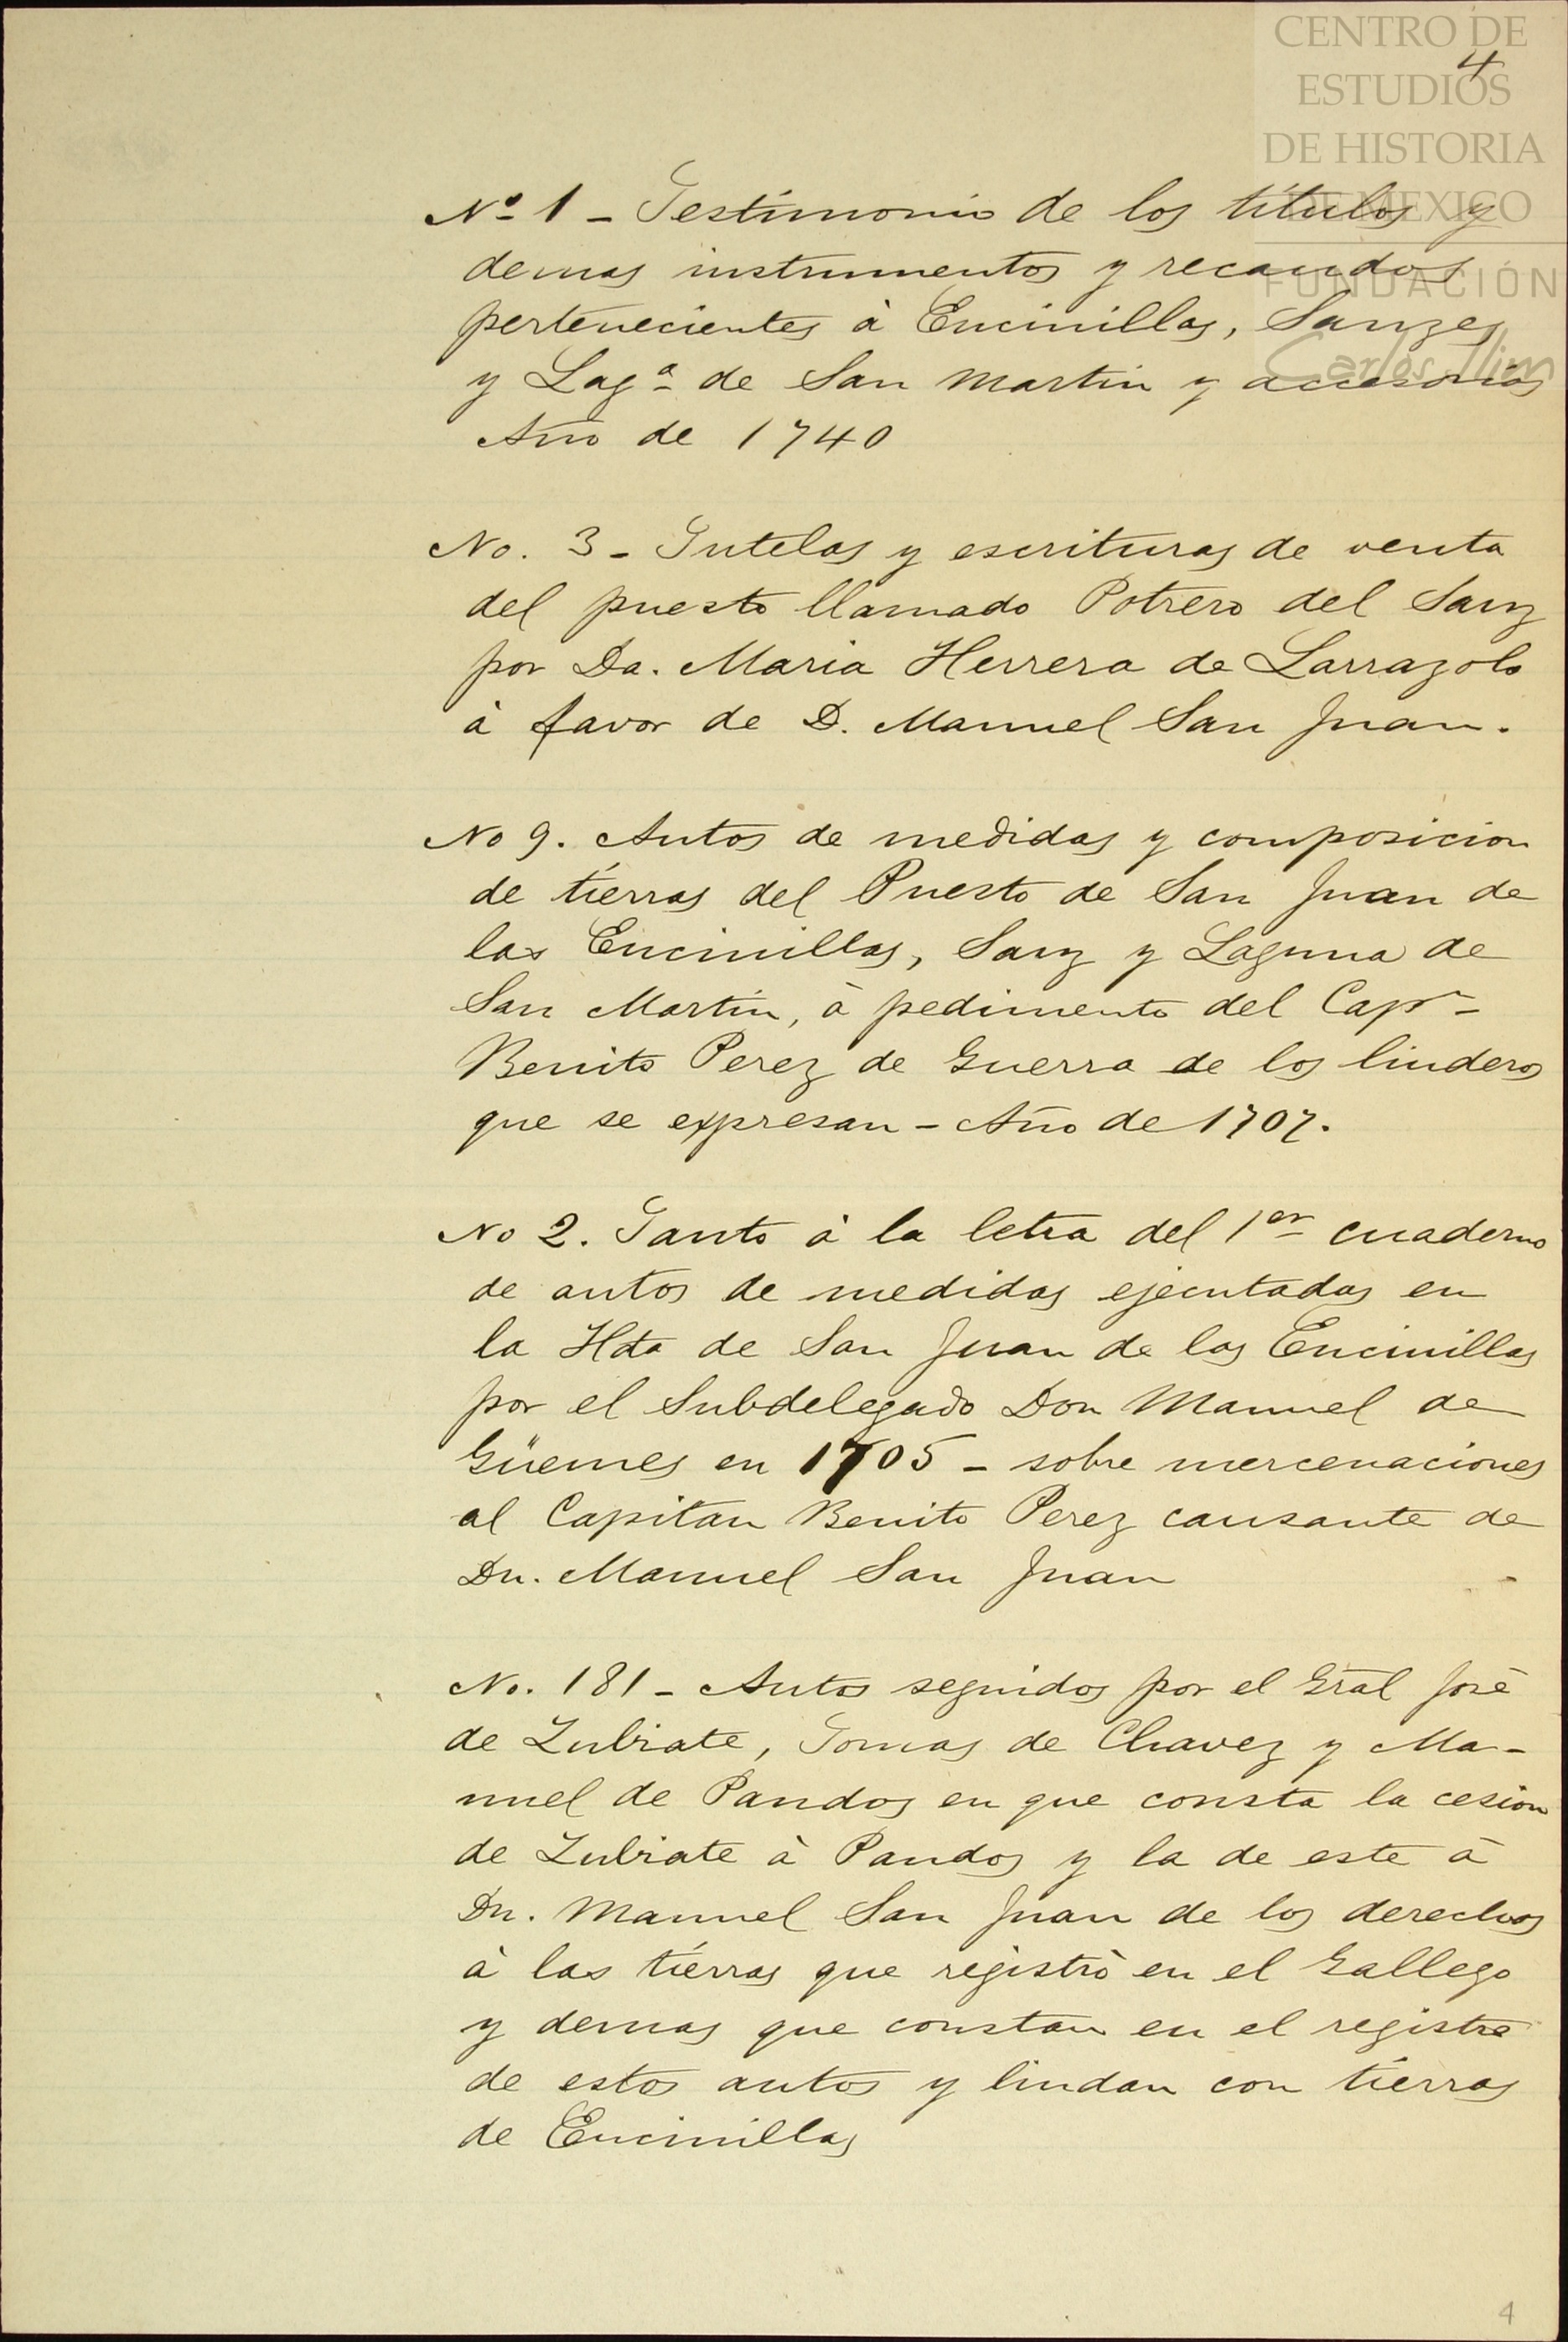 CENTRO DE
4
ESTUDIOS
DE HISTORIA
DE MEXICO
FUNDACIÓN
Carlos Slim
Nº 1 - Testimonio de los títulos y
demas instrumentos y recaudos
pertenecientes à Encinillas, Sauzes
y Lagª de San Martin y accesorios
Año de 1740
No. 3 - Tutelas y escrituras de venta
del puesto llamado Potrero del Sauz
por Da. Maria Herrera de Larrazolo
à favor de D. Manuel San Juan.
No 9. Autos de medidas y composicion
de tierras del Puesto de San Juan de
las Encinillas, Sauz y Laguna de
San Martin, à pedimento del Capn
Benito Perez de Guerra de los linderos
que se expresan - Año de 1707.
No 2. Tanto à la letra del 1er cuaderno
de autos de medidas ejecutadas en
la Hda de San Juan de las Encinillas
por el Subdelegado Don Manuel de
Güemes en 1705 - sobre mercenaciones
al Capitan Benito Perez causante de
Dn. Manuel San Juan
No. 181 - Autos seguidos por el Gral José
de Zubiate, Tomas de Chavez y Ma-
nuel de Pandos en que consta la cesion
de Zubiate à Pandos y la de este à
Dn. Manuel San Juan de los derechos
à las tierras que registrò en el Gallego
y demas que constan en el registro
de estos autos y lindan con tierras
de Encinillas
4